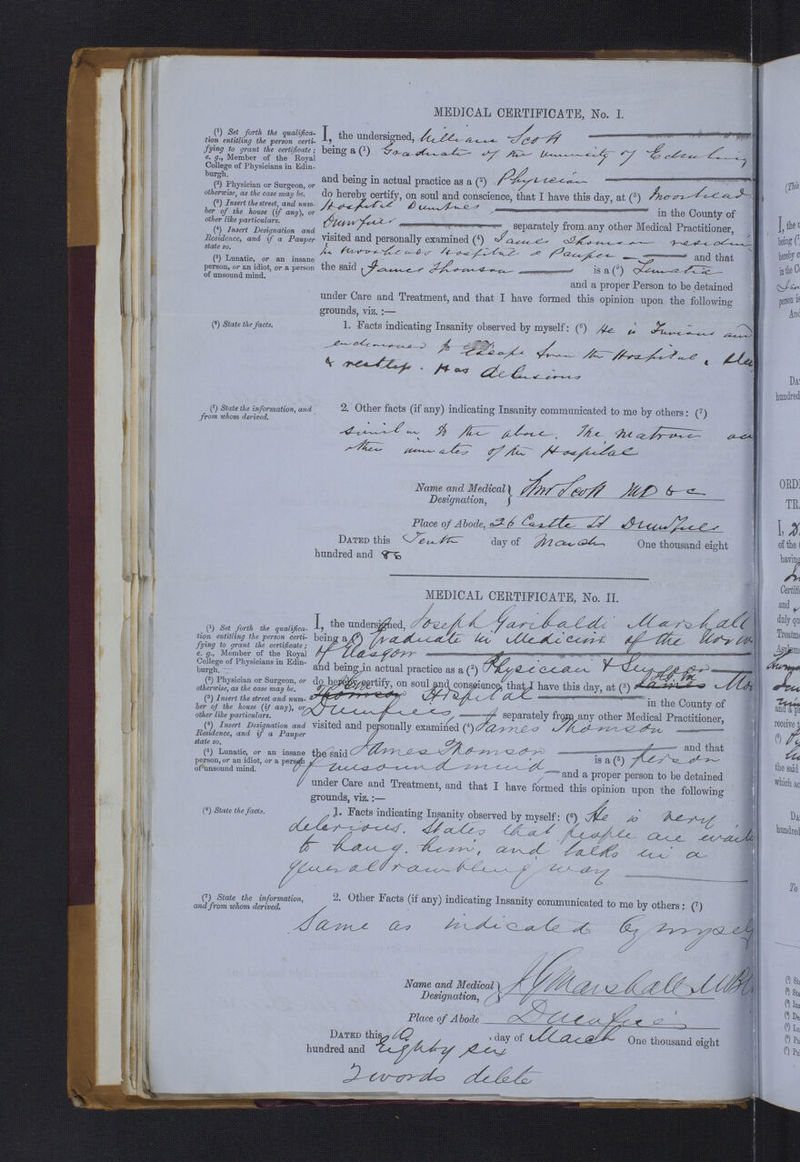 MEDICAL CERTIFICATE, No. I.
(1) Set forth the qualifica-
tion entitling the person certi-
fying to grant the certificate;
e. g., Member of the Royal
College of Physicians in Edin-
burgh.
(2) Physician or Surgeon, or
otherwise, as the case may be.
(3) Insert the street, and num-
ber of the house (if any), or
other like particulars.
(4) Insert Designation and
Residence, and if a Pauper
state so.
(5) Lunatic, or an insane
person, or an idiot, or a person
of unsound mind.
I, the undersigned, William Scott
being a (1) Graduate of the University of Edinburgh
and being in actual practice as a (2) Physician
do hereby certify, on soul and conscience, that I have this day, at (3) Moorhead
Hospital Dumfries in the County of
Dumfries separately from any other Medical Practitioner,
visited and personally examined (4) James Thomson residing
in Moorheads Hospital a Pauper and that
the said James Thomson is a (5) Lunatic
and a proper Person to be detained
under Care and Treatment, and that I have formed this opinion upon the following
grounds, viz. :—
(6) State the facts.
1. Facts indicating Insanity observed by myself: (6) He is Furious and
endeavoured to Escape from the Hospital,
& restless. Has delusions
(7) State the information, and
from whom derived.
2. Other facts (if any) indicating Insanity communicated to me by others: (7)
Similar to the above. The Matron and
other inmates of the Hospital
Name and Medical Designation, Wm Scott MD &c
Place of Abode, 26 Castle St Dumfries
DATED this Tenth day of March One thousand eight
hundred and 86
MEDICAL CERTIFICATE, No. II.
(1) Set forth the qualifica-
tion entitling the person certi-
fying to grant the certificate;
e. g., Member of the Royal
College of Physicians in Edin-
burgh.
(2) Physician or Surgeon, or
otherwise, as the case may be.
(3) Insert the street and num-
ber of the house (if any), or
other like particulars.
(4) Insert Designation and
Residence, and if a Pauper
state so.
(5) Lunatic, or an insane
person, or an idiot, or a person
of unsound mind.
I, the undersigned, Joseph Garibaldi Marshall
being a (1) Graduate in Medicine of the
of Glasgow
and being in actual practice as a (2) Physician & Surgeon
do hereby certify, on soul and conscience, that I have this day, at (3) James
Thomson Hospital in the County of
Dumfries, separately from any other Medical Practitioner,
visited and personally examined (4) James Thomson
the said James Thomson and that
is a (5) person
of unsound mind and a proper person to be detained
under Care and Treatment, and that I have formed this opinion upon the following
grounds, viz. :—
(6) State the facts.
1. Facts indicating Insanity observed by myself: (6) He is very
delerious. States that people are
to hang him, and talks in a
general rambling way
(7) State the information,
and from whom derived.
2. Other Facts (if any) indicating Insanity communicated to me by others: (7)
Same as indicated by myself
Name and Medical Designation, J G Marshall
Place of Abode Dumfries
DATED this 10 day of March One thousand eight
hundred and Eighty six
2 words delete